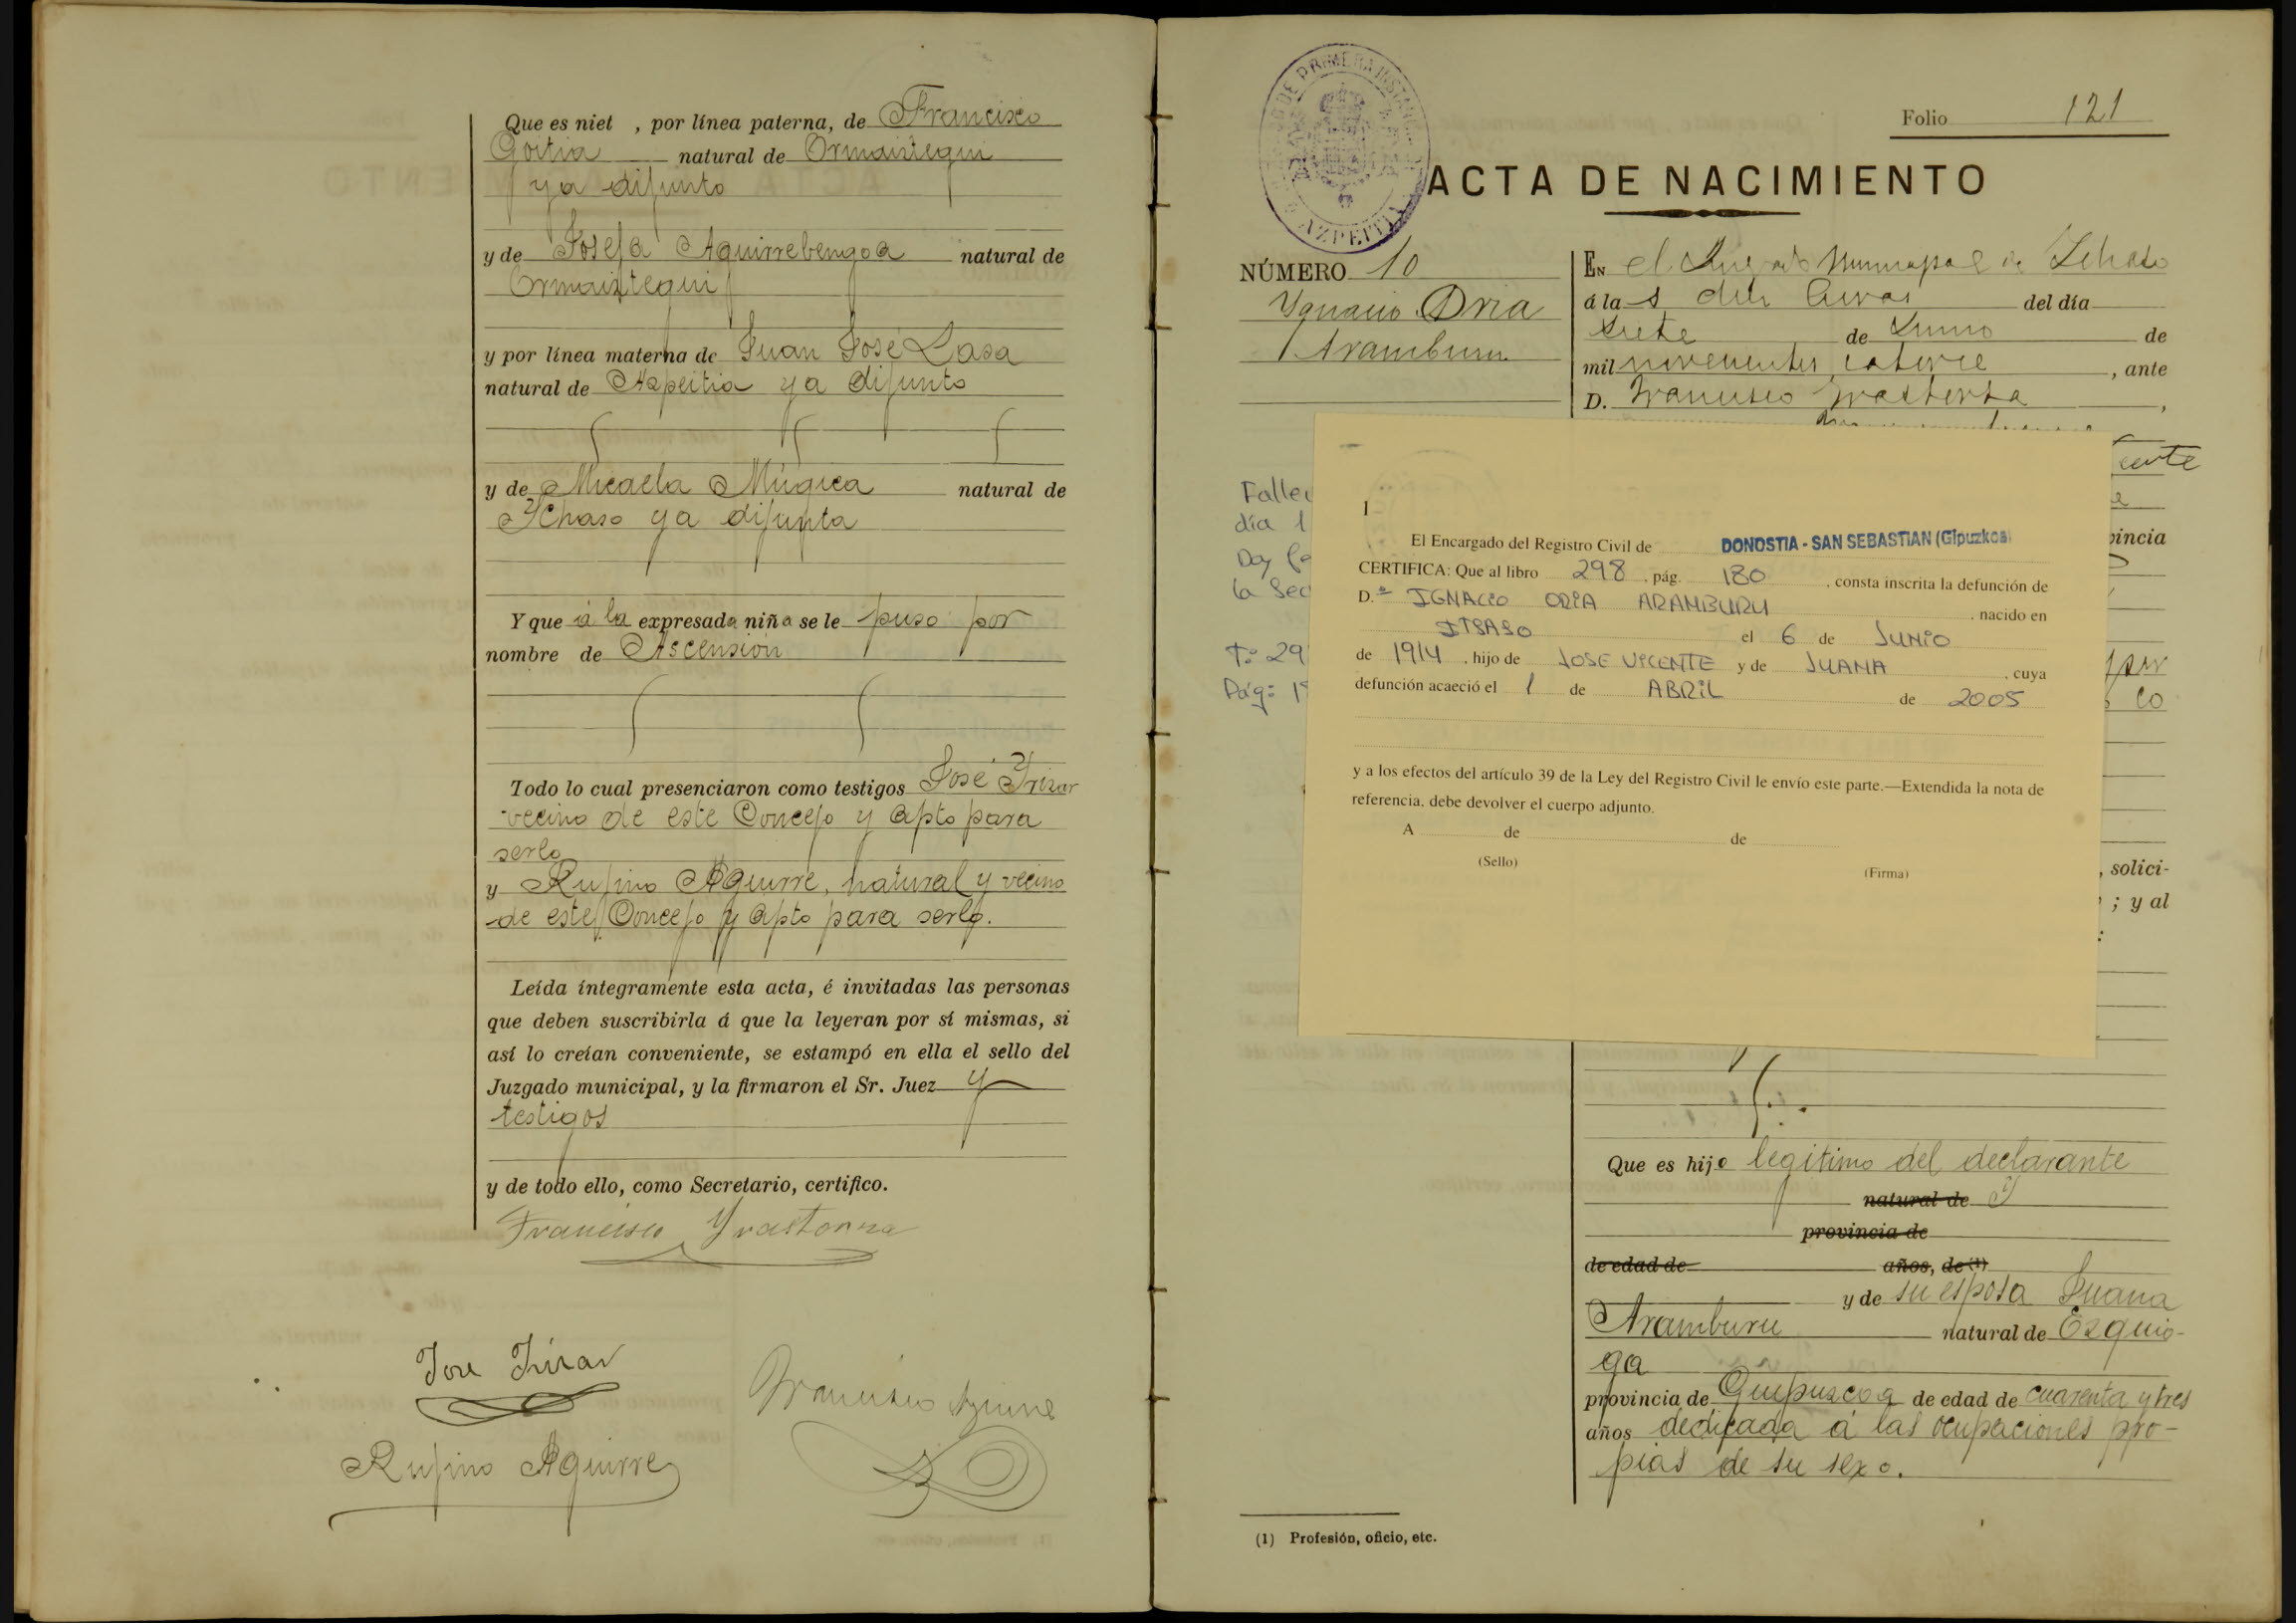 Que es niet , por línea paterna, de Francisco
Goitia natural de Ormaiztegui
ya difunto
y de Josefa Aguirrebengoa natural de
Ormaiztegui
y por línea materna de Juan José Lasa
natural de Azpeitia ya difunto
y de Micaela Múgica natural de
Ychaso ya difunta
Y que á la expresada niña se le puso por
nombre de Ascensión
Todo lo cual presenciaron como testigos José Yrizar
vecino de este Concejo y apto para
serlo
y Rufino Aguirre, natural y vecino
de este Concejo y apto para serlo.
Leída íntegramente esta acta, é invitadas las personas
que deben suscribirla á que la leyeran por sí mismas, si
así lo creían conveniente, se estampó en ella el sello del
Juzgado municipal, y la firmaron el Sr. Juez y
testigos
y de todo ello, como Secretario, certifico.
Francisco Yrastorza
José Yrizar
Francisco Aguirre
Rufino Aguirre
Folio 121
ACTA DE NACIMIENTO
NÚMERO 10
Ygnacio Oria
Aramburu
EN el Juzgado Municipal de Ichaso
á las diez horas del día
siete de Junio de
mil novecientos catorce , ante
D. Francisco Yrastorza ,
ente
incia
Falle
día 1
Doy fe
la Sec
T.: 29
Pág: 1
1
El Encargado del Registro Civil de DONOSTIA - SAN SEBASTIAN (Gipuzkoa)
CERTIFICA: Que al libro 298 , pág. 180 , consta inscrita la defunción de
D.ª IGNACIO ORIA ARAMBURU , nacido en
ITSASO el 6 de JUNIO
de 1914 , hijo de JOSE VICENTE y de JUANA , cuya
defunción acaeció el 1 de ABRIL de 2005
y a los efectos del artículo 39 de la Ley del Registro Civil le envío este parte.—Extendida la nota de
referencia, debe devolver el cuerpo adjunto.
A de de
(Sello) (Firma)
co
, solici-
; y al
:
Que es hijo legítimo del declarante
natural de y
provincia de
de edad de años, de (1)
y de su esposa Juana
Aramburu natural de Ezquio-
ga
provincia de Guipuzcoa de edad de cuarenta y tres
años dedicada á las ocupaciones pro-
pias de su sexo.
(1) Profesión, oficio, etc.